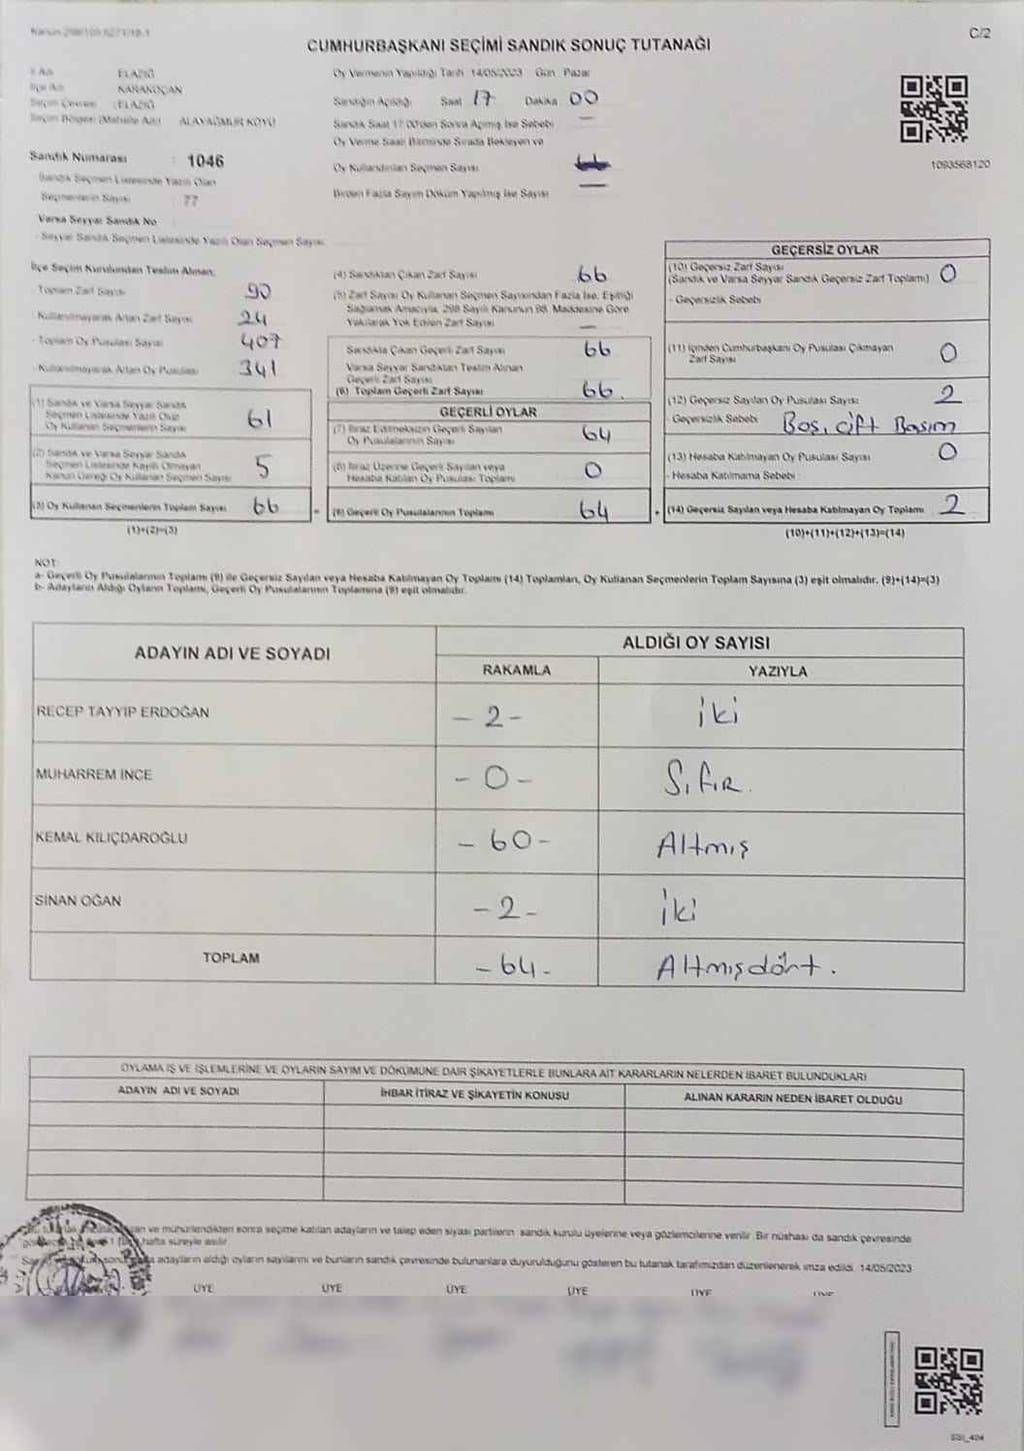 C/2
CUMHURBAŞKANI SEÇİMİ SANDIK SONUÇ TUTANAĞI
İl Adı : ELAZIĞ
İlçe Adı : KARAKOÇAN
Seçim Çevresi : ELAZIĞ
Seçim Bölgesi (Mahalle Adı) ALAYAĞMUR KÖYÜ
Sandık Numarası : 1046
- Sandık Seçmen Listesinde Yazılı Olan
Seçmenlerin Sayısı : 77
Varsa Seyyar Sandık No
- Seyyar Sandık Seçmen Listesinde Yazılı Olan Seçmen Sayısı
Oy Vermenin Yapıldığı Tarih 14/05/2023 Gün Pazar
Sandığın Açıldığı Saat 17 Dakika 00
Sandık Saat 17:00'den Sonra Açılmış İse Sebebi —
Oy Verme Saati Bitiminde Sırada Bekleyen ve
Oy Kullandırılan Seçmen Sayısı
Birden Fazla Sayım Döküm Yapılmış İse Sayısı —
1093568120
İlçe Seçim Kurulundan Teslim Alınan;
- Toplam Zarf Sayısı 90
- Kullanılmayarak Artan Zarf Sayısı 24
- Toplam Oy Pusulası Sayısı 407
- Kullanılmayarak Artan Oy Pusulası 341
(1) Sandık ve Varsa Seyyar Sandık
Seçmen Listesinde Yazılı Olup
Oy Kullanan Seçmenlerin Sayısı 61
(2) Sandık ve Varsa Seyyar Sandık
Seçmen Listesinde Kayıtlı Olmayan
Kanun Gereği Oy Kullanan Seçmen Sayısı 5
(3) Oy Kullanan Seçmenlerin Toplam Sayısı 66
(1)+(2)=(3)
(4) Sandıktan Çıkan Zarf Sayısı 66
(5) Zarf Sayısı Oy Kullanan Seçmen Sayısından Fazla İse, Eşitliği
Sağlamak Amacıyla, 298 Sayılı Kanunun 98. Maddesine Göre
Yakılarak Yok Edilen Zarf Sayısı —
Sandıkta Çıkan Geçerli Zarf Sayısı 66
Varsa Seyyar Sandıktan Teslim Alınan
Geçerli Zarf Sayısı
(6) Toplam Geçerli Zarf Sayısı 66
GEÇERLİ OYLAR
(7) İtiraz Edilmeksizin Geçerli Sayılan
Oy Pusulalarının Sayısı 64
(8) İtiraz Üzerine Geçerli Sayılan veya
Hesaba Katılan Oy Pusulası Toplamı 0
(9) Geçerli Oy Pusulalarının Toplamı 64
GEÇERSİZ OYLAR
(10) Geçersiz Zarf Sayısı
(Sandık ve Varsa Seyyar Sandık Geçersiz Zarf Toplamı) 0
- Geçersizlik Sebebi
(11) İçinden Cumhurbaşkanı Oy Pusulası Çıkmayan
Zarf Sayısı 0
(12) Geçersiz Sayılan Oy Pusulası Sayısı 2
- Geçersizlik Sebebi Boş, çift Basım
(13) Hesaba Katılmayan Oy Pusulası Sayısı 0
- Hesaba Katılmama Sebebi
(14) Geçersiz Sayılan veya Hesaba Katılmayan Oy Toplamı 2
(10)+(11)+(12)+(13)=(14)
NOT:
a- Geçerli Oy Pusulalarının Toplamı (9) ile Geçersiz Sayılan veya Hesaba Katılmayan Oy Toplamı (14) Toplamları, Oy Kullanan Seçmenlerin Toplam Sayısına (3) eşit olmalıdır. (9)+(14)=(3)
b- Adayların Aldığı Oyların Toplamı, Geçerli Oy Pusulalarının Toplamına (9) eşit olmalıdır.
ADAYIN ADI VE SOYADI
ALDIĞI OY SAYISI
RAKAMLA YAZIYLA
RECEP TAYYİP ERDOĞAN -2- iki
MUHARREM İNCE -0- Sıfır.
KEMAL KILIÇDAROĞLU -60- Altmış
SİNAN OĞAN -2- iki
TOPLAM -64- Altmışdört.
OYLAMA İŞ VE İŞLEMLERİNE VE OYLARIN SAYIM VE DÖKÜMÜNE DAİR ŞİKAYETLERLE BUNLARA AİT KARARLARIN NELERDEN İBARET BULUNDUKLARI
ADAYIN ADI VE SOYADI İHBAR İTİRAZ VE ŞİKAYETİN KONUSU ALINAN KARARIN NEDEN İBARET OLDUĞU
ve mühürlendikten sonra seçime katılan adayların ve talep eden siyasi partilerin sandık kurulu üyelerine veya gözlemcilerine verilir. Bir nüshası da sandık çevresinde
hafta süreyle asılır.
adayların aldığı oyların sayılarını ve bunların sandık çevresinde bulunanlara duyurulduğunu gösteren bu tutanak tarafımızdan düzenlenerek imza edildi. 14/05/2023
ÜYE ÜYE ÜYE ÜYE ÜYE ÜYE